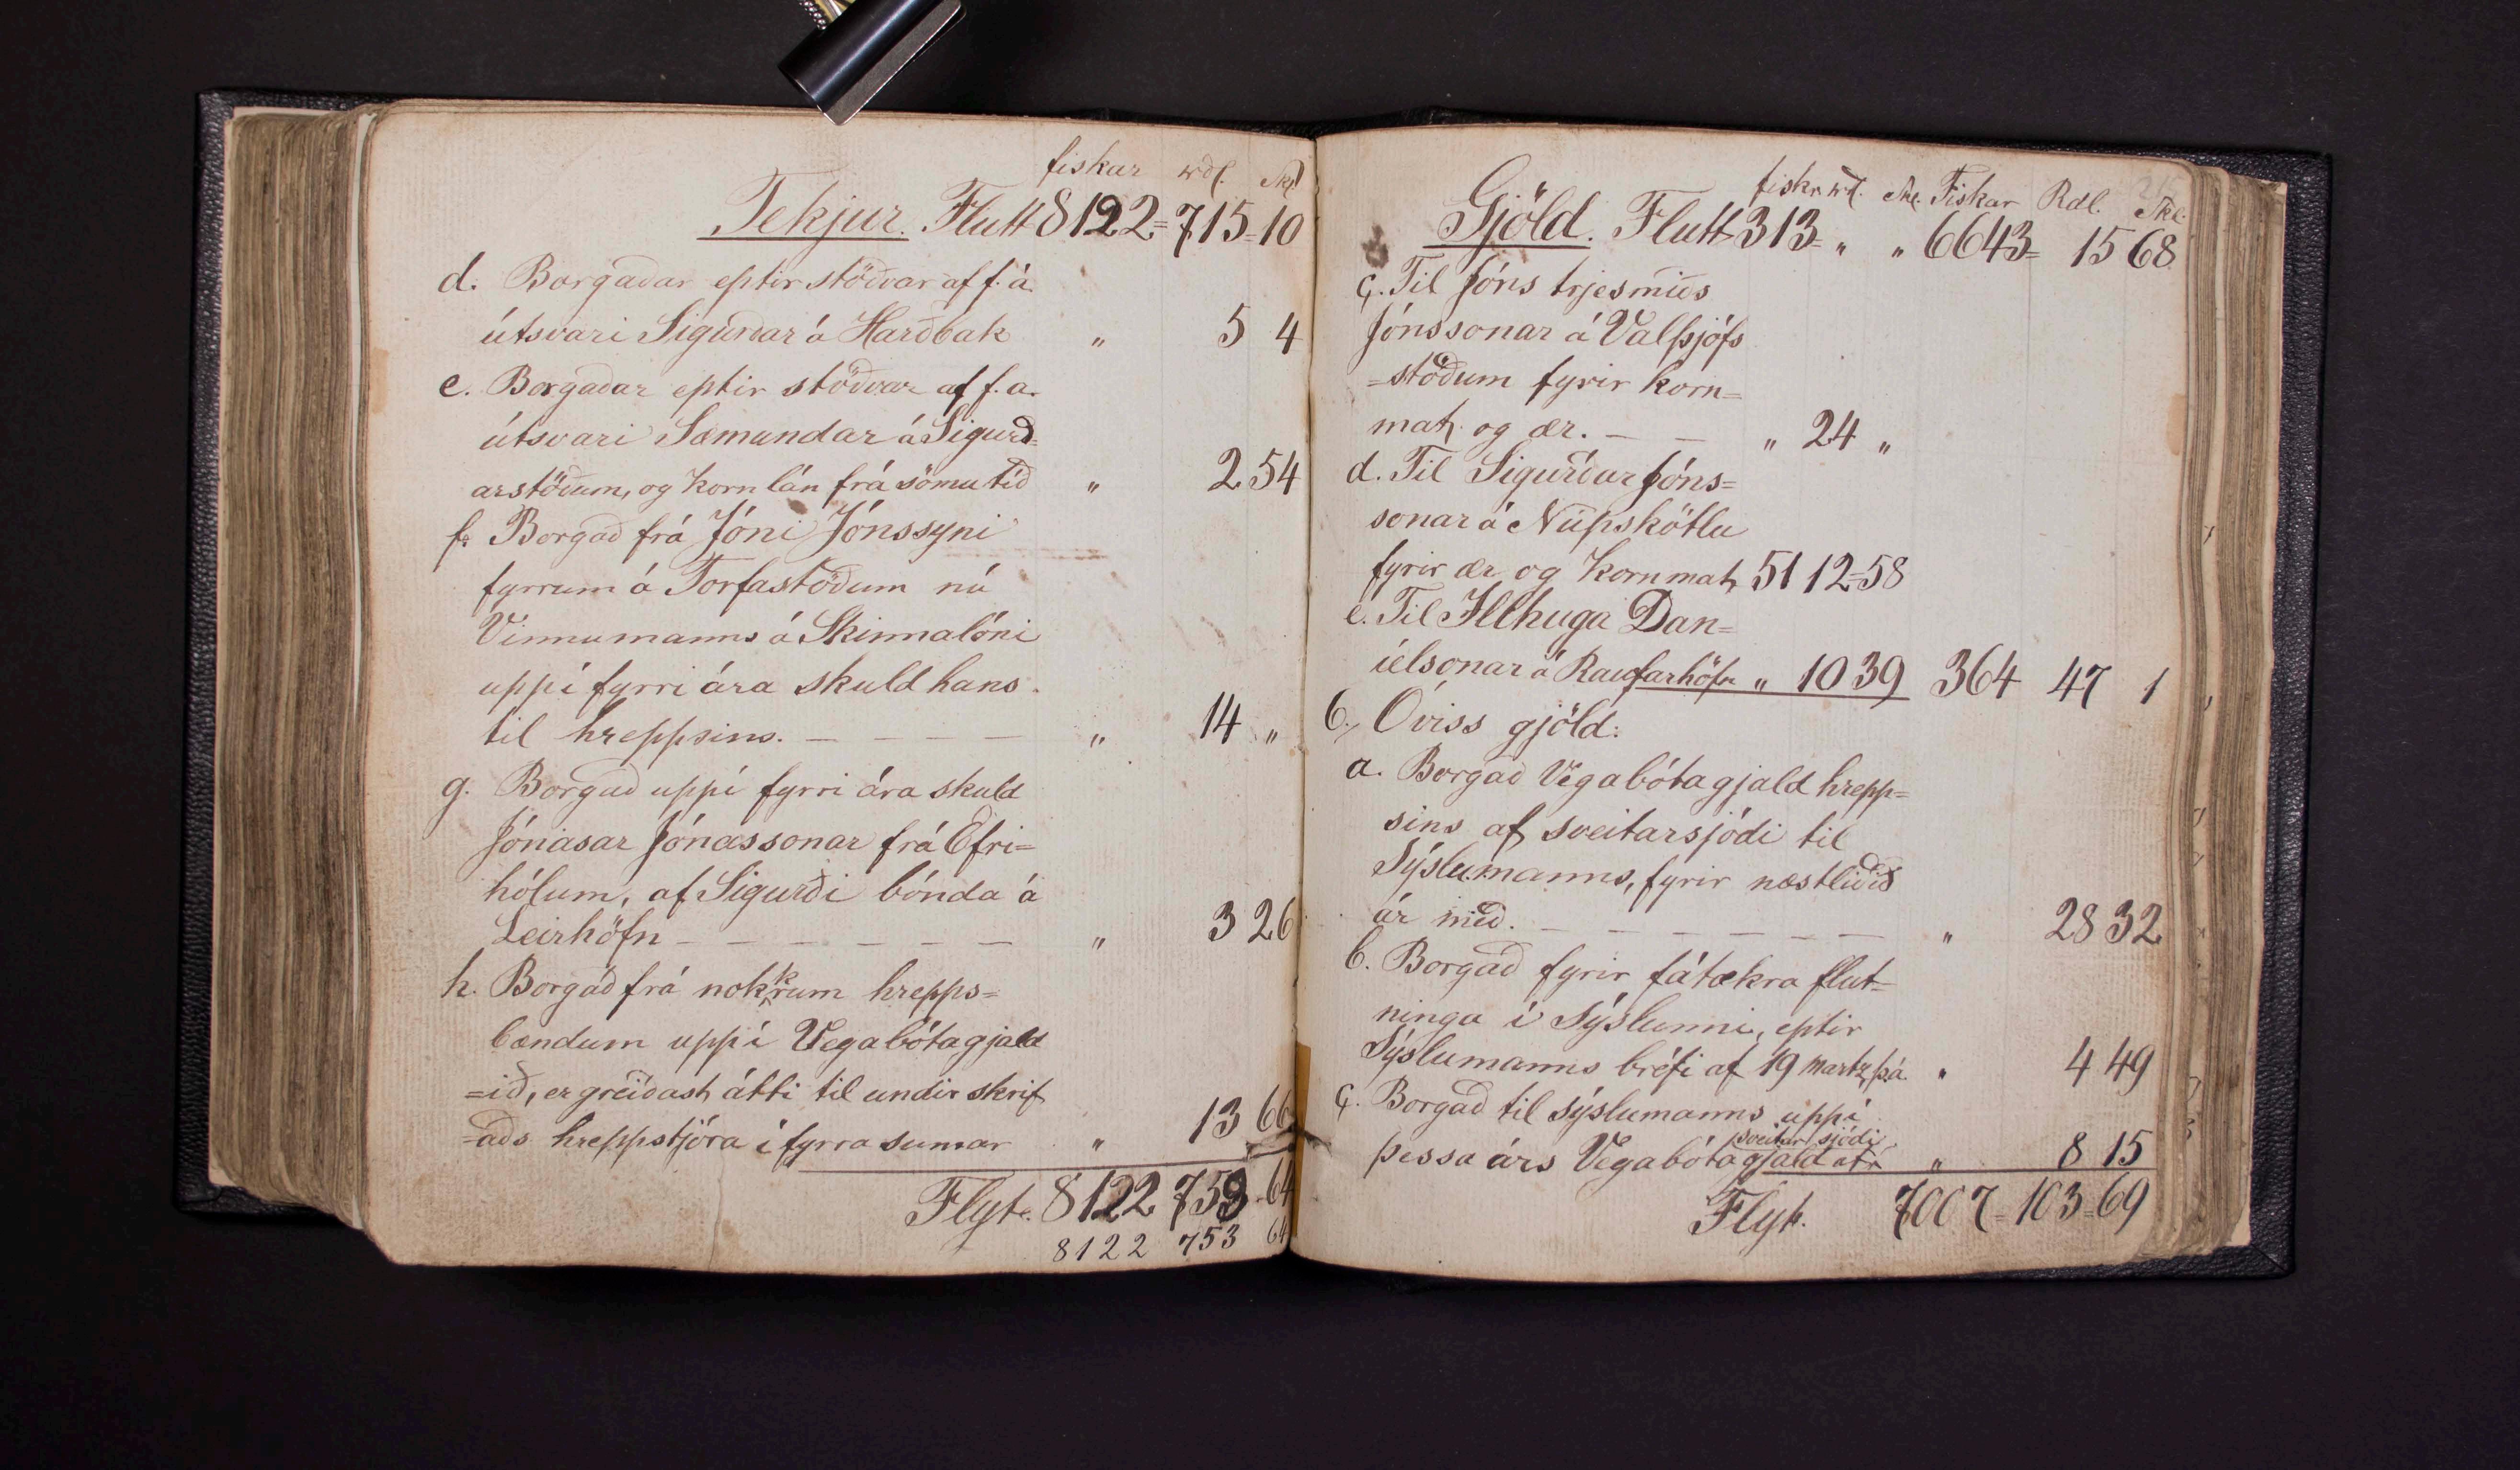 fiskar rdl. Skl
Tekjur. Flutt 8122= 715=10
d. Borgaðar eptir stöðvar af f. á.
útsvari Sigurðar á Harðbak „ 5 4
e. Borgaðar eptir stöðvar af f. a.
útsvari Sæmundar á Sigurð=
arstöðum, og Korn lán frá sömu tíð „ 2 54
f. Borgað frá Jóni Jónssyni
fyrrum á Torfastöðum nú
Vinnumanns á Skinnalóni
uppí fyrri ára skuld hans
til hreppsins. — — — — „ 14 „
g. Borgað uppí fyrri ára skuld
Jónasar Jónassonar frá Efri=
hólum, af Sigurði bónda á
Leirhöfn — — — — — — „ 3 26
h. Borgað frá nokkrum hrepps=
bændum uppí Vegabótagjald
=ið, er greiðast átti til undir skrif
=aðs hreppstjóra í fyrra sumar „ 13 66
Flyt. 8122 753 64
8122 753 64
fiskr rd. Skl. Fiskar Rdl. Skl.
Gjöld. Flutt 313= „ „ 6643= 15 68
ç. Til Jóns trjesmiðs
Jónssonar á Valþjófs
=stöðum fyrir korn=
mat og ær. — — „ 24 „
d. Til Sigurðar Jóns=
sonar á Núpskötlu
fyrir ær og Kornmat 51 12=58
e. Til Illhuga Dan=
íelsonar á Raufarhöfn „ 10 39 364 47 1
6., Óviss gjöld:
a. Borgað Vegabótagjald hrepp=
sins af sveitarsjóði til
Sýslumanns, fyrir næstliðið
ár með. — — — — — — „ 28 32
b. Borgað fyrir fátækra flut=
ninga í Sýslunni, eptir
Sýslumanns bréfi af 19 Martz þ.á. „ 4 49
ç. Borgað til sýslumanns uppí
sveitar sjóði
þessa árs Vegabótagjald úr „ 8 15
Flyt. 7007= 103=69